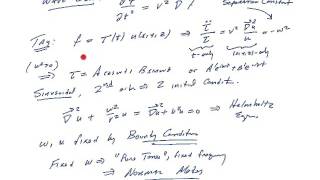 Separation Constant
Try: f = T(t) u(x,y,z) ⇒ T̈/T = v² ∇²u/u = -ω²
t-only (x,y,z)-only
(ω²>0) ⇒ T = A cos ωt + B sin ωt or A'e^{iωt} + B'e^{-iωt}
Sinusoidal, 2nd ord ⇒ 2 initial Condit.
⇒ ∇²u + ω²/v² u = ∇²u + k²u = 0 ⇒ Helmholtz
Eqn.
ω, u fixed by Boundary Conditions
Fixed ω ⇒ "Pure Tones", fixed frequency
⇒ Normal Modes